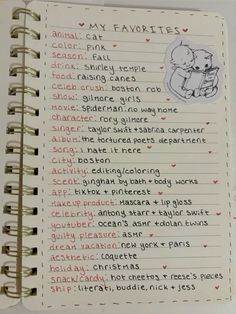 MY FAVORITES
animal: cat
color: pink
season: fall
drink: shirley temple
food: raising canes
celeb crush: boston rob
show: gilmore girls
movie: spiderman: no way home
character: rory gilmore
singer: taylor swift + sabrina carpenter
album: the tortured poets department
song: i hate it here
city: boston
activity: editing/coloring
scent: gingham by bath + body works
app: tiktok + pinterest
makeup product: mascara + lip gloss
celebrity: antony starr + taylor swift
youtuber: ocean's asmr + dolan twins
guilty pleasure: asmr
dream vacation: new york + paris
aesthetic: coquette
holiday: christmas
snack/candy: hot cheetos + reese's pieces
ship: literati, buddie, nick + jess